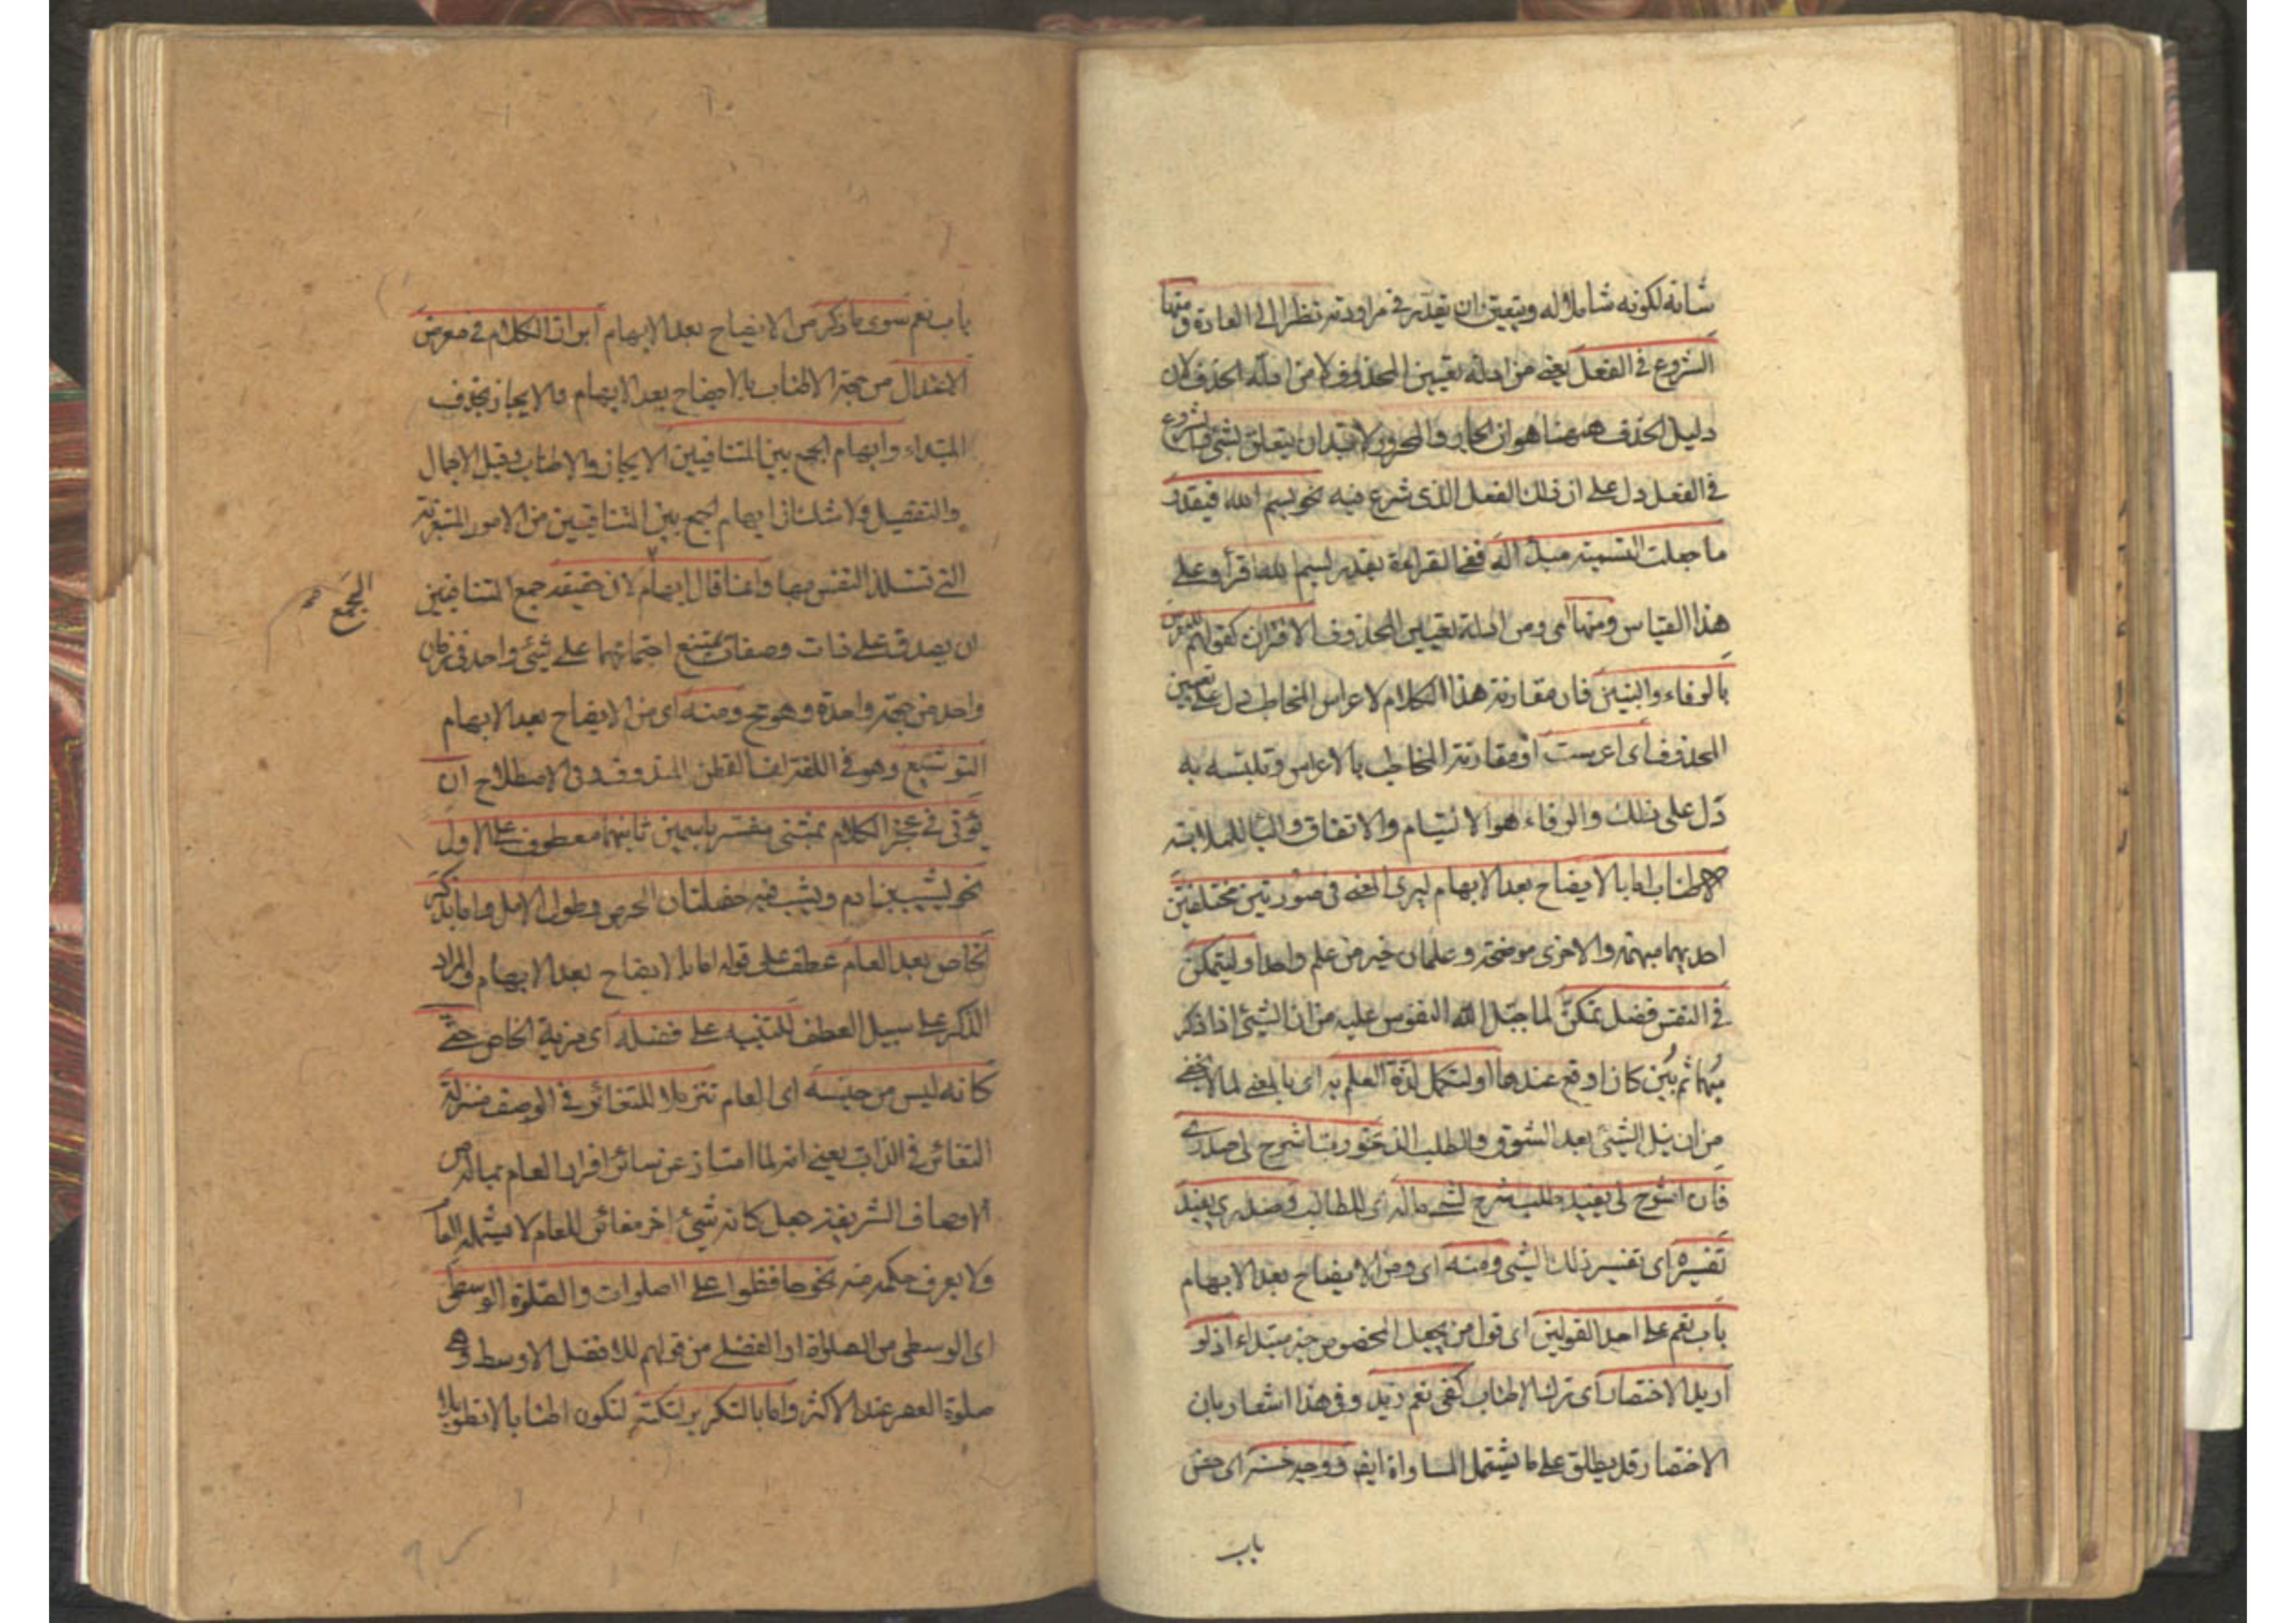 شانه لكونه شاملا له ويتعين ان يقدر في مراودته نظرا الى العادة ومنها
الشروع في الفعل يعنى من ادلة تعيين المحذوف لا من ادلة الحذف لان
دليل الحذف ههنا هو ان الجار والمجرور لابد ان يتعلق بشئ والشروع
في الفعل دل على ان ذلك الفعل الذى شرع فيه نحو بسم الله فيقدر
ما جعلت التسمية مبدأ له ففى القراءة يقدر بسم الله اقرأ وعلى
هذا القياس ومنها اى ومن ادلة تعيين المحذوف الاقتران كقولهم للمعرس
بالرفاء والبنين فان مقارنة هذا الكلام لاعراس المخاطب دل على تعيين
المحذوف اى اعرست او مقارنة المخاطب بالاعراس وتلبسه به
دل على ذلك والرفاء هو الالتيام والاتفاق والباء للملابسة
والاطناب اما بالايضاح بعد الابهام ليرى المعنى في صورتين مختلفتين
احديهما مبهمة والاخرى موضحة وعلمان خير من علم واحد او ليتمكن
في النفس فضل تمكن لما جبل الله النفوس عليه من ان الشئ اذا ذكر
مبهما ثم بين كان اوقع عندها او لتكمل لذة العلم به اى بالمعنى لما لا يخفى
من ان نيل الشئ بعد الشوق والطلب الذ نحو رب اشرح لى صدرى
فان اشرح لى يفيد طلب شرح لشئ ما له اى للطالب وصدرى يفيد
تفسيره اى تفسير ذلك الشئ ومنه اى ومن الايضاح بعد الابهام
باب نعم على احد القولين اى قول من يجعل المخصوص خبر مبتداء اذ لو
اريد الاختصار اى ترك الاطناب كفى نعم زيد وفى هذا اشعار بان
الاختصار قد يطلق على ما يشتمل المساواة ايضا ووجه حسنه اى حسن
باب
باب نعم سوى ما ذكر من الايضاح بعد الابهام ابراز الكلام في معرض
الاعتدال من جهة الاطناب بالايضاح بعد الابهام والايجاز بحذف
المبتداء وايهام الجمع بين المتنافيين الايجاز والاطناب وقيل الاجمال
والتفصيل ولا شك ان ايهام الجمع بين المتنافيين من الامور المستغربة
التى تستلذ النفس بها وانما قال ايهام لان حقيقة جمع المتنافيين
الجمع
ان يصدق على ذات وصفان يمتنع اجتماعهما على شئ واحد في زمان
واحد من جهة واحدة وهو مح ومنه اى من الايضاح بعد الابهام
التوشيع وهو في اللغة لف القطن المندوف وفى الاصطلاح ان
يؤتى في عجز الكلام بمثنى مفسر باسمين ثانيهما معطوف على الاول
نحو يشيب بنادم ويشب فيه خصلتان الحرص وطول الامل واما بذكر
الخاص بعد العام عطف على قوله اما بالايضاح بعد الابهام والمراد
الذكر على سبيل العطف للتنبيه على فضله اى مزية الخاص حتى
كانه ليس من جنسه اى العام تنزيلا للتغائر في الوصف منزلة
التغائر في الذات يعنى انه لما امتاز عن سائر افراد العام بماله من
الاوصاف الشريفة جعل كانه شئ اخر مغائر للعام لا يشمله العام
ولا يعرف حكمه منه نحو حافظوا على الصلوات والصلوة الوسطى
اى الوسطى من الصلواة او الفضلى من قولهم للافضل الاوسط وهى
صلوة العصر عند الاكثر واما بالتكرير لنكتة لتكون اطنابا لا تطويلا